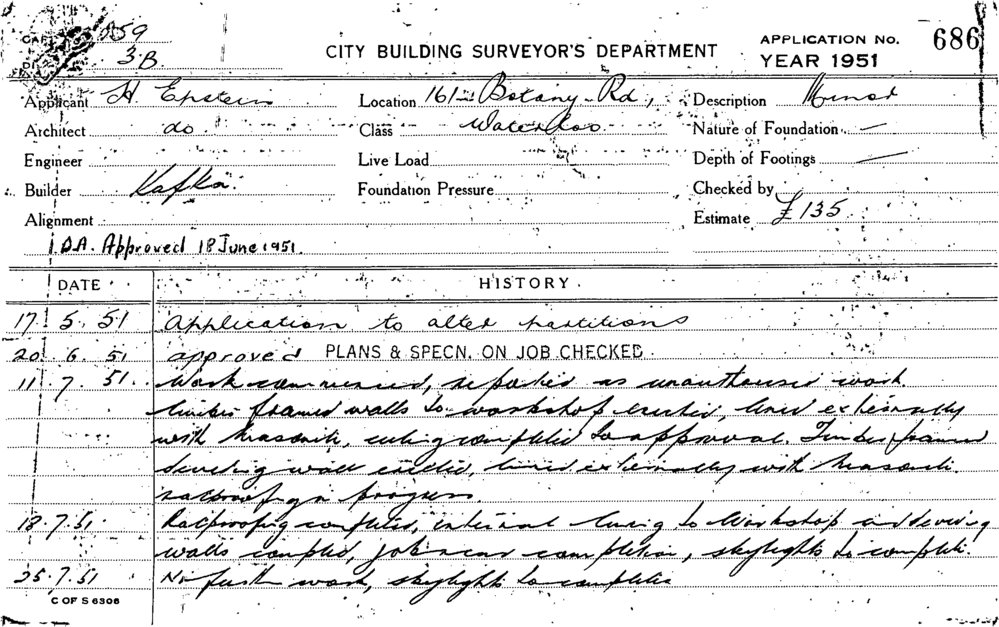 CITY BUILDING SURVEYOR'S DEPARTMENT
APPLICATION No. 686
YEAR 1951
3B
Applicant H. Epstein
Location 161 Botany Rd,
Description Minor
Architect do.
Class Waterloo
Nature of Foundation —
Engineer
Live Load
Depth of Footings —
Builder Kafka.
Foundation Pressure
Checked by
Alignment
Estimate £135
D.A. Approved 18 June 1951.
DATE HISTORY.
17. 5. 51 Application to alter partitions
20. 6. 51 approved PLANS & SPECN. ON JOB CHECKED.
11. 7. 51. Work commenced, reported as unauthorised work
timber framed walls to workshop erected, lined externally
with masonite, ceiling completed to approval. Timber framed
dividing wall erected, lined externally with masonite.
ratproofg in progress.
18. 7. 51. Ratproofg completed, internal lining to workshop and dividing
walls completed, job near completion, skylights to complete.
25. 7. 51 No further work, skylights to complete
C OF S 6306